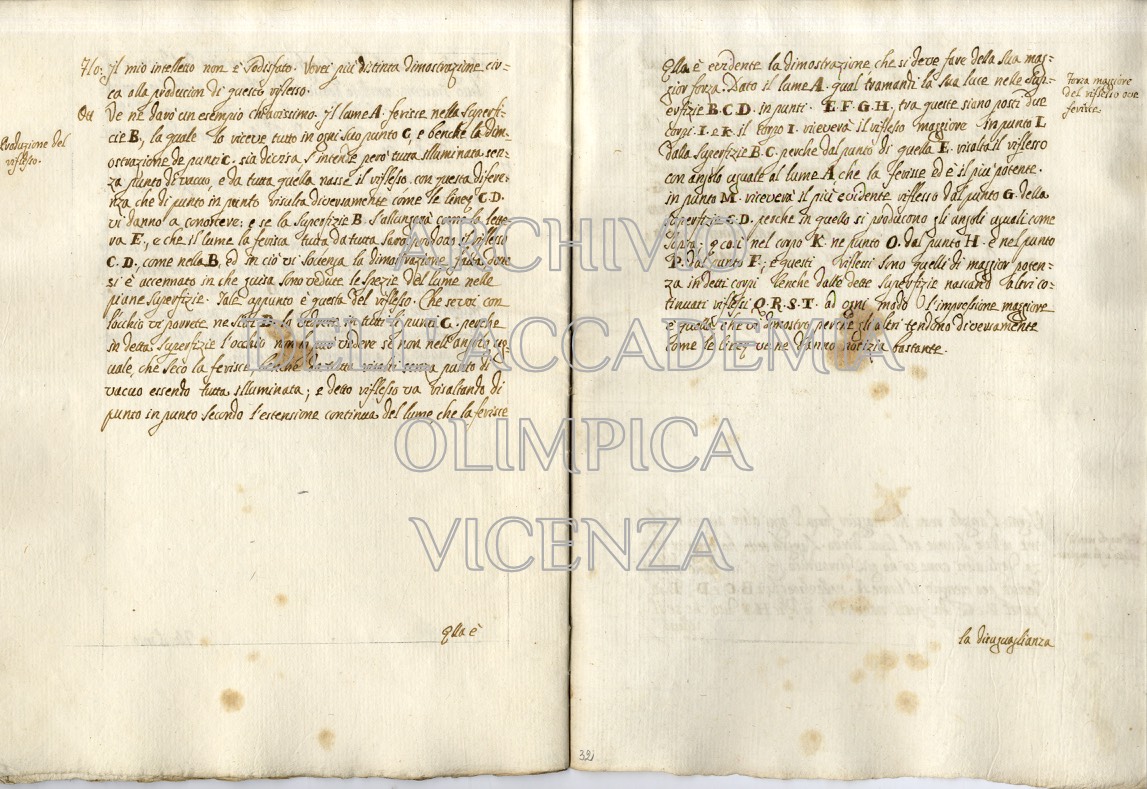 Flo: Il mio intelleto non è sodisfato. Vorei più distinta dimostrazione cir=
ca alla producion di questo riflesso.
Ve ne darò un esempio chiarissimo. Il lume A. ferisce nella superfi=
Produzione del
riflesso.
cie B, la quale lo riceve tutto in ogni suo punto C, e benche la dim=
ostrazione de punti C. sia decisa, s'intende però tutta illuminata sen=
za punto di vacuo, e da tutta quella nasse il riflesso. con questa difere=
nza che di punto in punto risulta diversamente come le linee C.D.
vi danno a conoscere; e se la superfizie B. s'allungerà come la lette=
ra E, e che il lume la ferisca tutta da tutta sarà prodoto il riflesso
C. D., come nela B, ed in ciò vi sovenga la dimostrazione fatta dove
si è accennato in che guisa sono vedute le spezie del lume nelle
piane superfizie. Tale appunto è questa del riflesso. Che se voi con
l'occhio vi porrete ne siti D. la vedrete in tutti li punti C. perche
in detta superfizie l'occhio non può vedere se non nell'angolo ug=
uale, che seco la ferisce, benche da tutto risalti senza punto di
vacuo essendo tutta illuminata; e detto riflesso va risaltando di
punto in punto secondo l'estensione continua del lume che la ferisce
Qlla è
Qlla è evidente la dimostrazione che si deve fare dela sua mag=
gior forza. Dato il lume A. qual tramandi la sua luce nelle sup=
erfizie B.C.D. in punti. E.F.G.H. tra queste siano posti due
Forza maggiore
del riflesso ove
ferisce.
corpi I. e K. il corpo I. riceverà il riflesso maggiore in punto L
dalla superfizie B.C. perche dal punto di quella E. risalta il riflesso
con angolo uguale al lume A che la ferisse ed è il più potente.
in punto M. riceverà il più evidente riflesso dal punto G. della
superfizie C.D. perche in quello si producono gli angoli uguali come
sopra; e così nel corpo K. ne punto O. dal punto H. e nel punto
P. dal punto F.; e questi riflessi sono quelli di maggior poten=
za in detti corpi benche dalle dette superfizie nascano altri co=
ntinuati riflessi Q.R.S.T. ad ogni modo l'impresione maggiore
è quella che vi dimostro perche gli altri tendono diversamente
come le linee ve ne danno notizia bastante.
la disuguaglianza
32
ARCHIVIO
DELL'ACCADEMIA
OLIMPICA
VICENZA